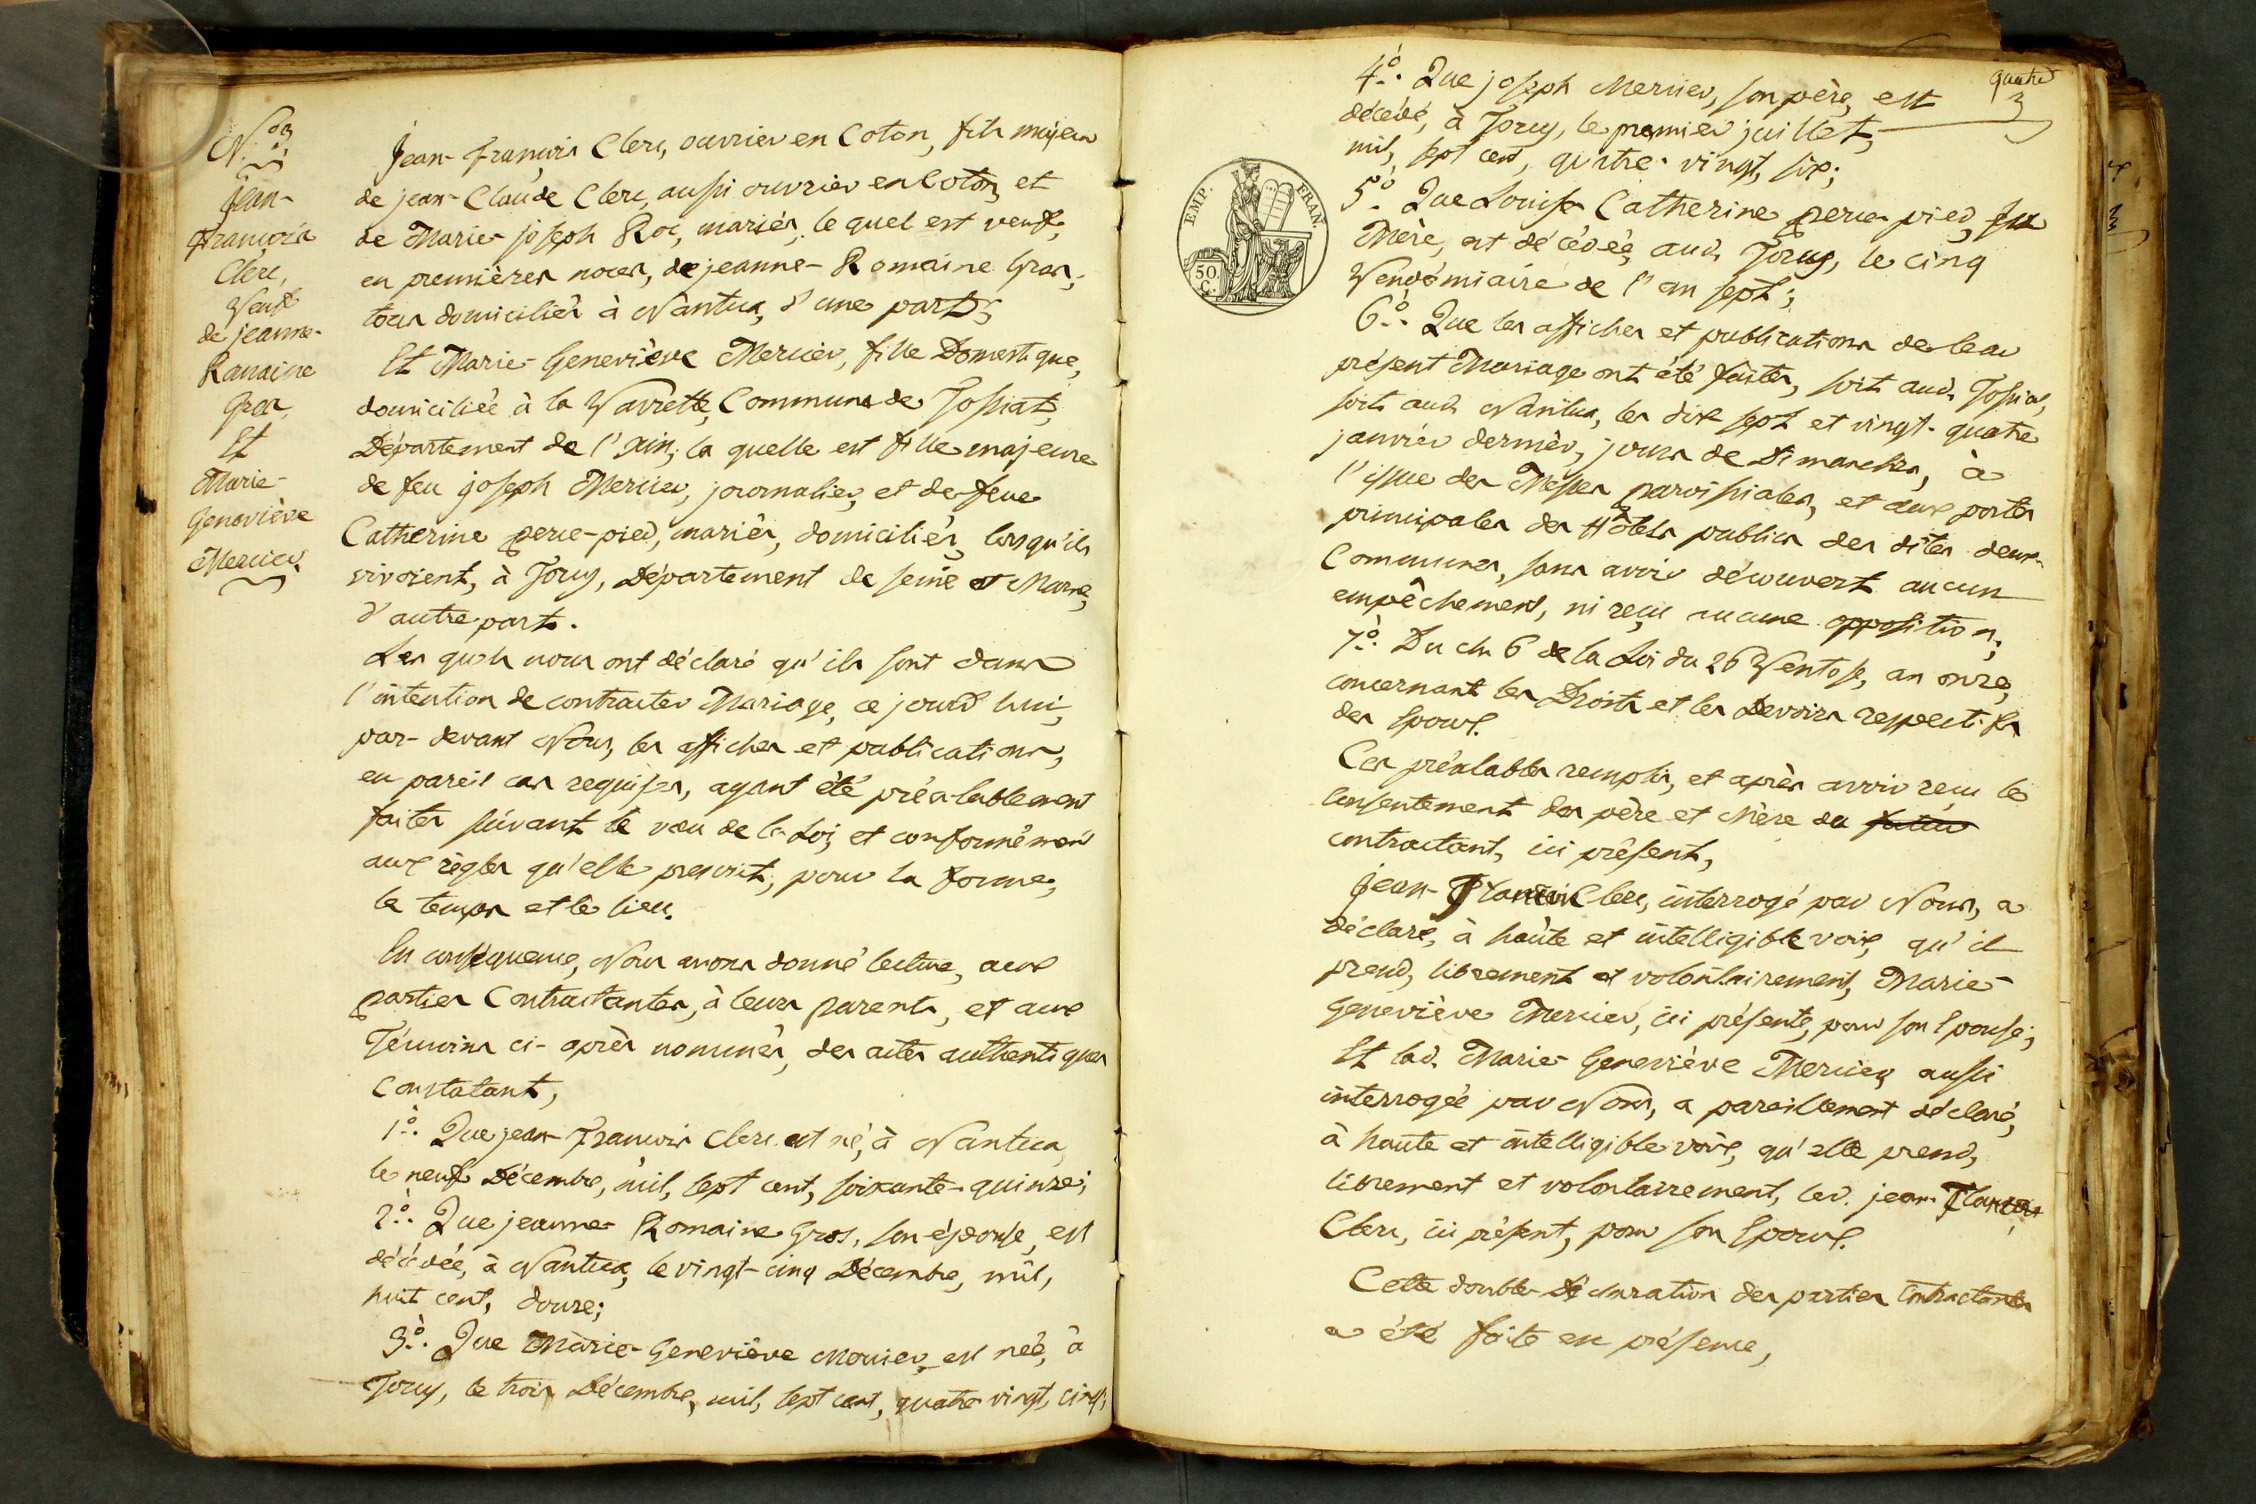 N.°
jean-
françois
Clerc,
Veuf
de jeanne-
Romaine
gros.
Et
Marie-
Geneviève
Mercier.
Jean-françois Clerc, ouvrier en Coton, fils majeur
de jean-Claude Clerc, aussi ouvrier en Coton, et
de Marie-joseph Roc, mariés, le quel est veuf,
en premières noces, de jeanne-Romaine Gros,
tous domiciliés à Nantua, d'une part;
Et Marie-Geneviève Mercier, fille Domestique,
domiciliée à la Vavrette, Commune de Tossiat,
Département de l'ain, la quelle est fille majeure
de feu joseph Mercier, journalier, et de feue
Catherine perce-pied, mariés, domiciliés, lorsqu'ils
vivoient, à Torcy, Département de Seine et Marne,
d'autre part.
Les quels nous ont déclaré qu'ils sont dans
l'intention de contracter Mariage, ce jourd'hui,
par-devant Nous, les affiches et publications,
en pareil cas requises, ayant été préalablement
faites suivant le vœu de la Loi, et conformément
aux règles qu'elle prescrit, pour la forme,
le temps et le lieu.
En conséquence, Nous avons donné lecture, aux
parties Contractantes, à leurs parents, et aux
Témoins ci-après nommés, des actes authentiques
Constatant,
1.° Que jean-françois Clerc est né, à Nantua,
le neuf Décembre, mil, sept cent, soixante-quinze;
2.° Que jeanne-Romaine Gros, son épouse, est
décédée, à Nantua, le vingt-cinq Décembre, mil,
huit cent, douze;
3.° Que Marie-Geneviève Mercier est née, à
Torcy, le trois Décembre, mil, sept cent, quatre vingt, cinq;
quatre
4.° Que joseph Mercier, son père, est
décédé, à Torcy, le premier juillet,
mil, sept cent, quatre-vingt, six;
EMP. FRAN.
50 C.
5.° Que Louise Catherine perce-pied, sa
Mère, est décédée, aud. Torcy, le cinq
Vendémiaire de l'an sept;
6.° Que les affiches et publications de leur
présent Mariage ont été faites, soit aud. Tossiat,
soit aud. Nantua, les dix sept et vingt-quatre
janvier dernier, jours de Dimanches, à
l'issue des Messes paroissiales, et aux portes
principales des Hôtels publics des dites deux
Communes, sans avoir découvert aucun
empêchement, ni reçu aucune opposition;
7.° Du ch. 6 de la Loi du 26 Ventose, an onze,
concernant les Droits et les Devoirs respectifs
des Epoux.
Ces préalables remplis, et après avoir reçu le
Consentement des père et Mère du futur
contractant, ici présent,
Jean-François Clerc, interrogé par Nous, a
déclaré, à haute et intelligible voix, qu'il
prend, librement et volontairement, Marie-
Geneviève Mercier, ici présente, pour son Epouse;
Et lad. Marie-Geneviève Mercier, aussi
interrogée par Nous, a pareillement déclaré,
à haute et intelligible voix, qu'elle prend,
librement et volontairement, led. jean-François
Clerc, ici présent, pour son Epoux.
Cette double déclaration des parties Contractantes
a été faite en présence,